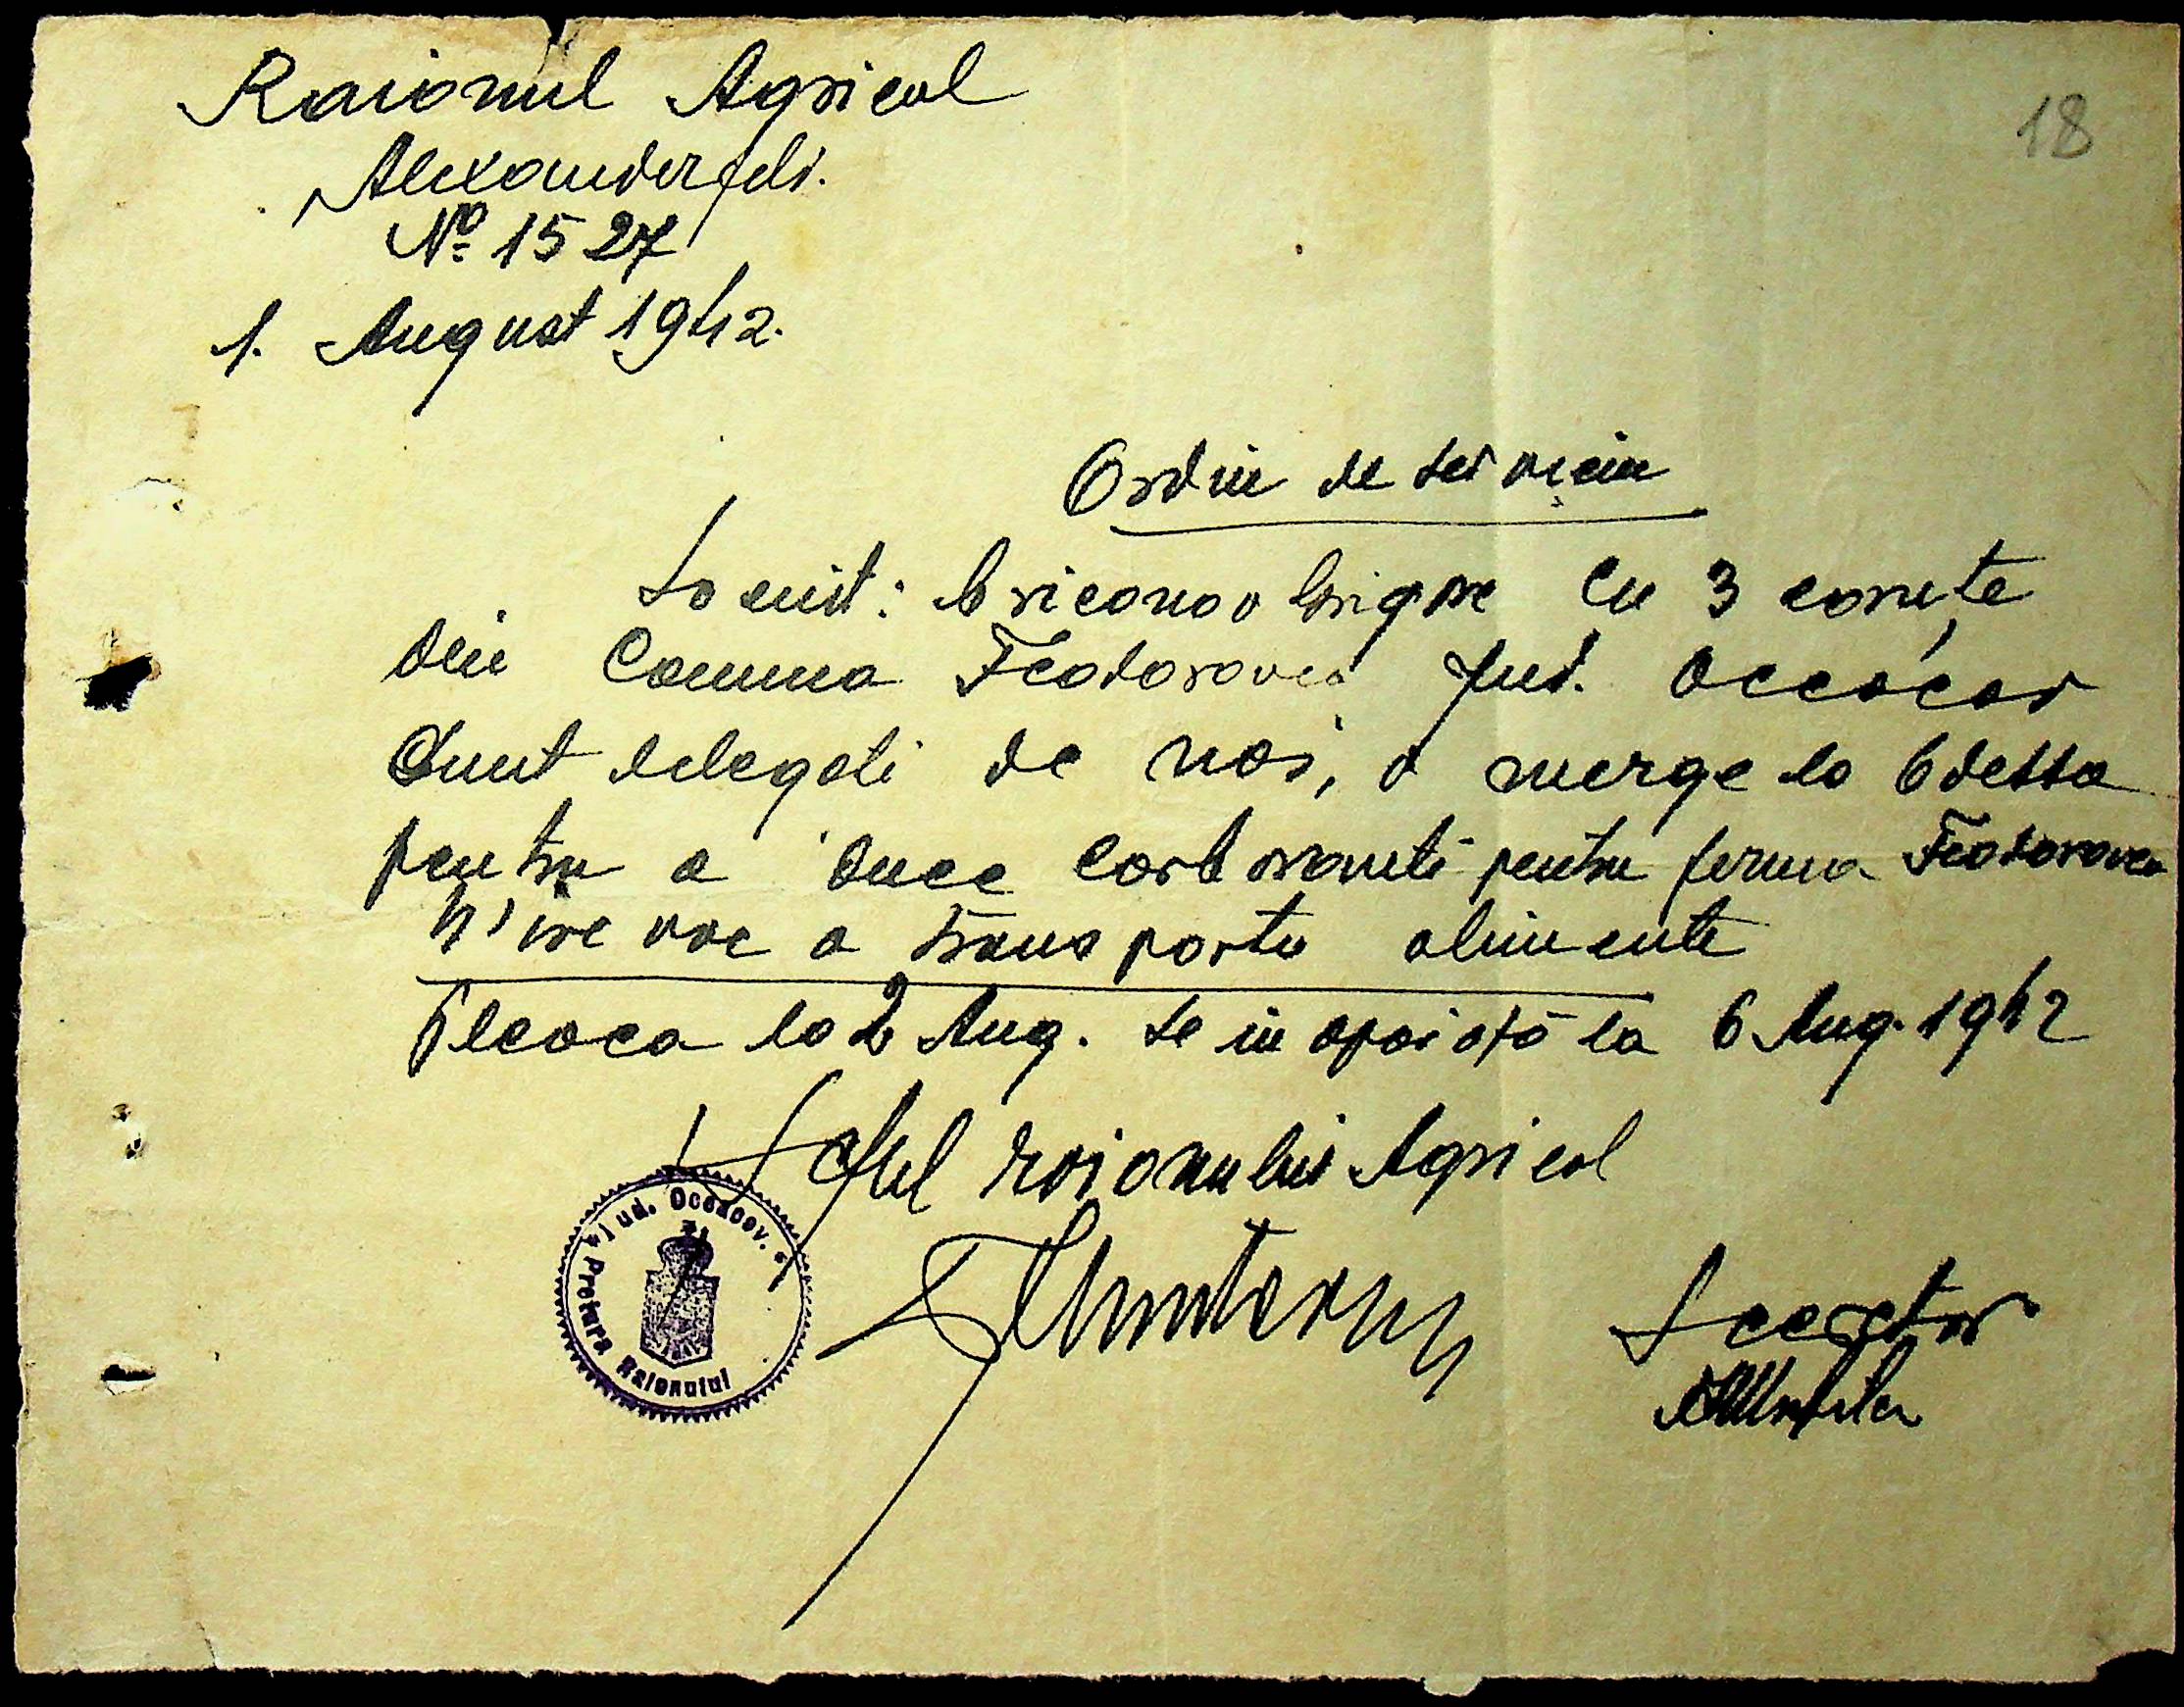 Raionul Agricol
18
Alexanderfeld.
No 1527
1. August 1942.
Ordin de serviciu
Locuit: Griconov Grigore cu 3 caruțe
din Comuna Feodorovca Jud. Oceacov
Sunt delegati de noi, a merge la Odessa
pentru a duce carburanti pentru ferma Feodorovca
N'are voe a transporta alimente
Pleaca la 2 Aug. se inapoiază la 6 Aug. 1942
Șeful raionului Agricol
Jud. Oceacov.
Pretura Raionului
Secretar